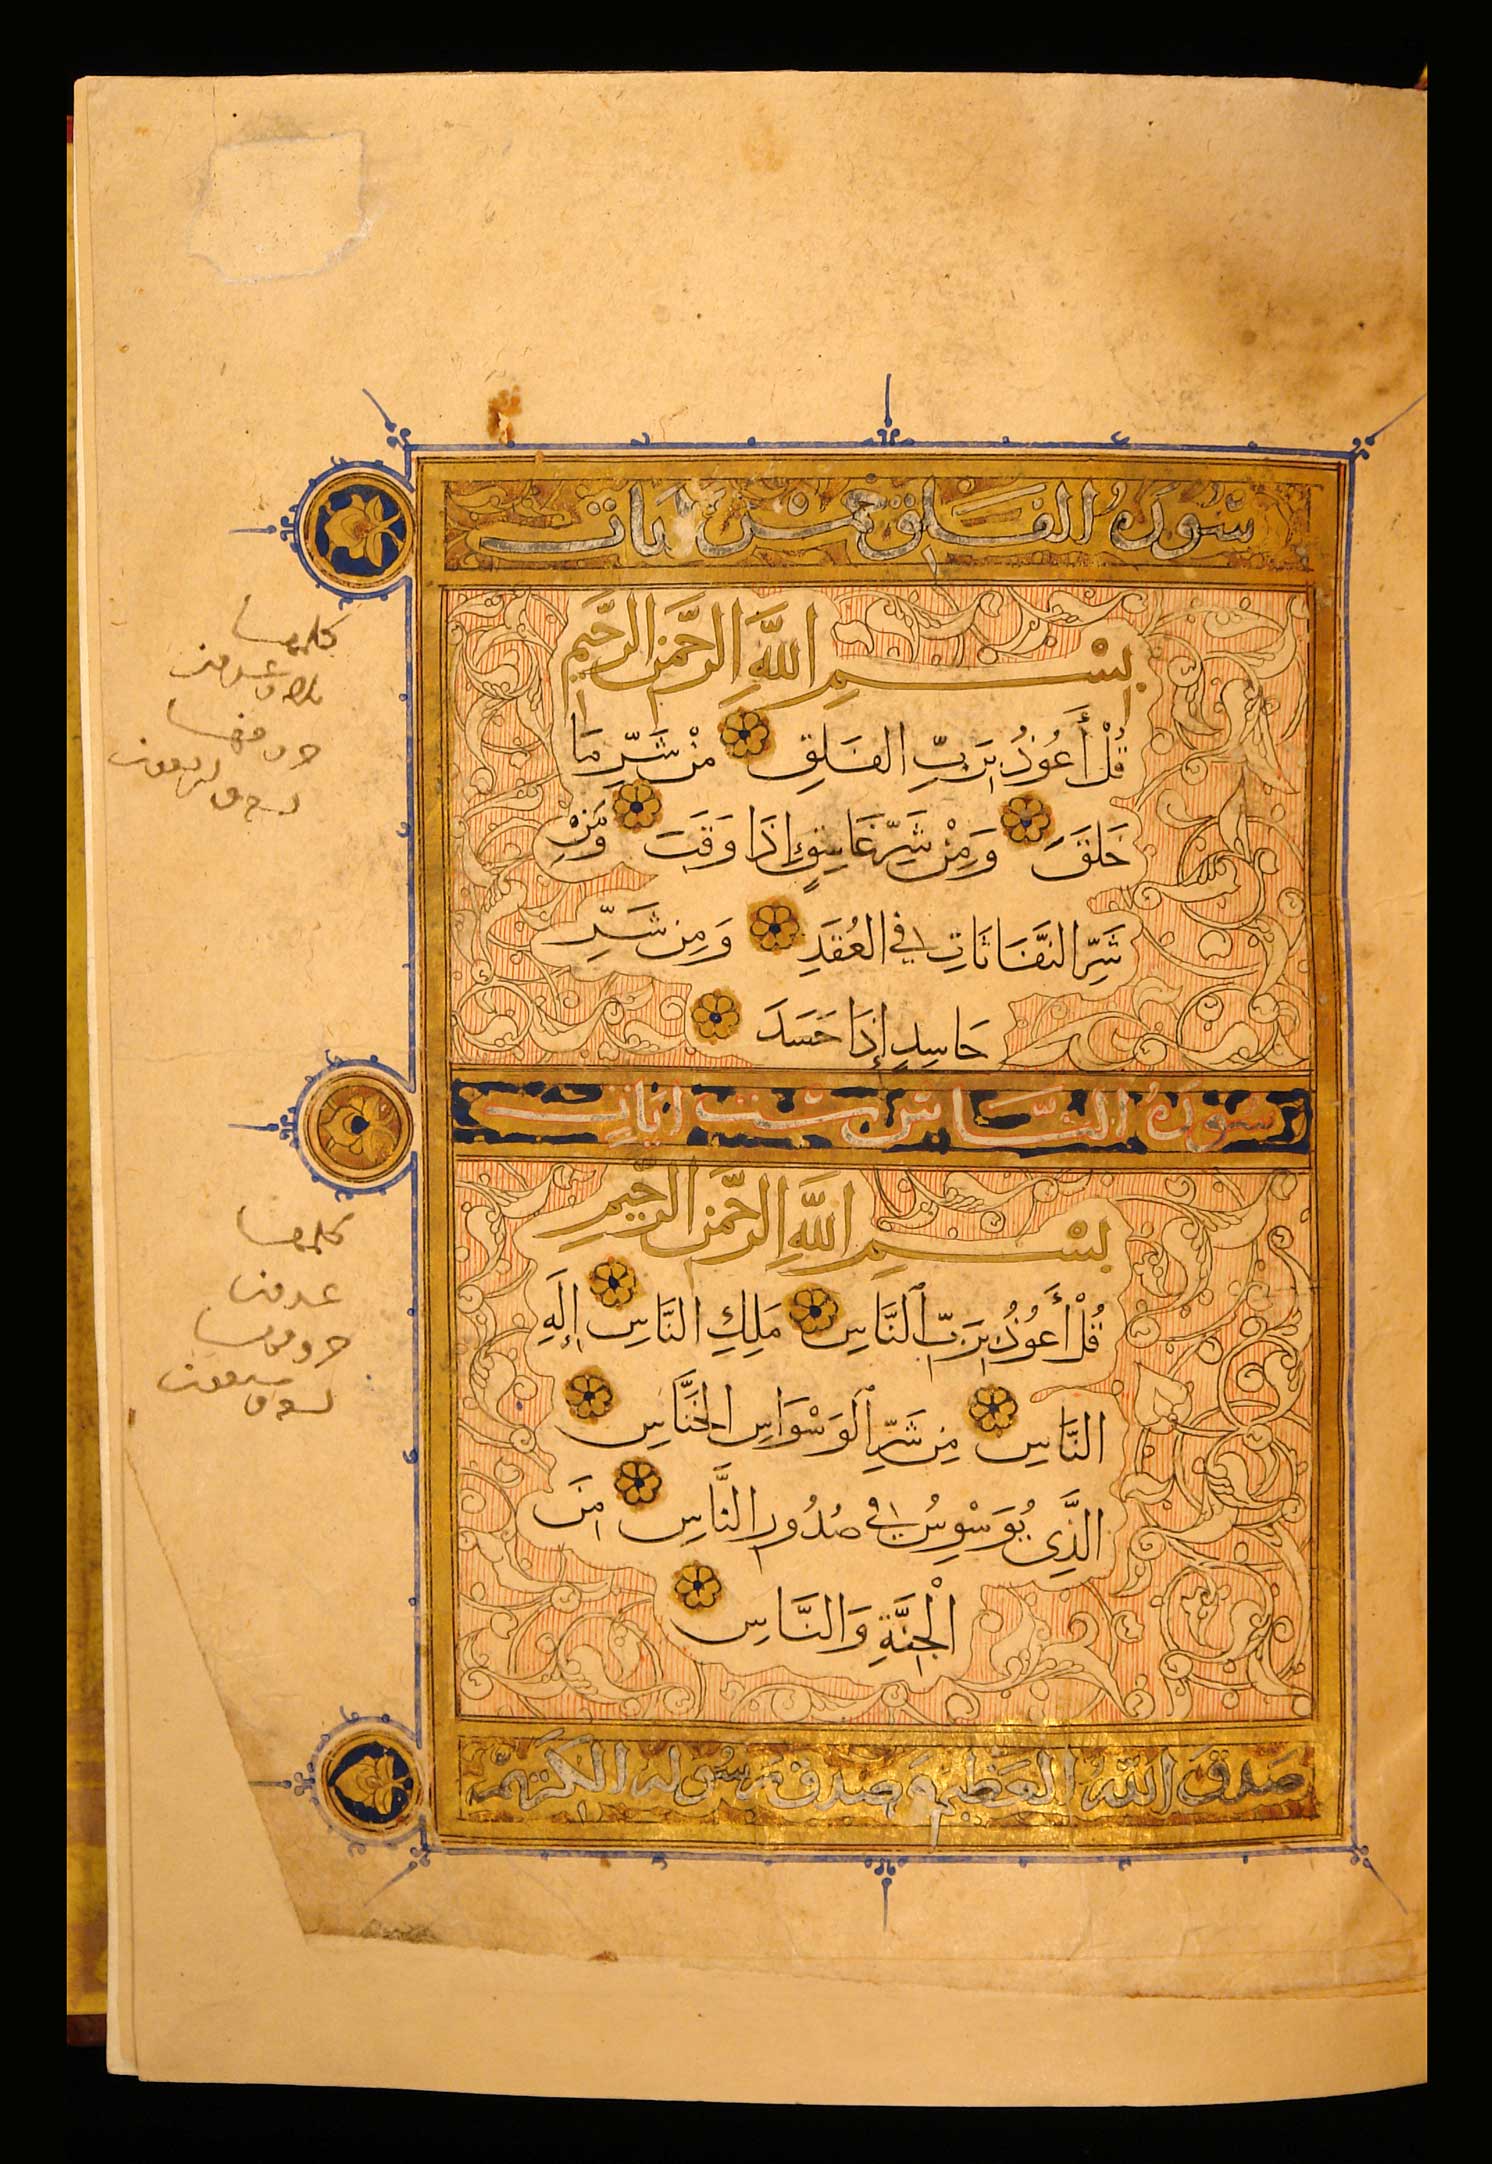 سُورَةُ الفَلَقِ خمس ايات
بِسْمِ اللَّهِ الرَّحْمَنِ الرَّحِيمِ
قُلْ أَعُوذُ بِرَبِّ الفَلَقِ مِنْ شَرِّ مَا
خَلَقَ وَمِنْ شَرِّ غَاسِقٍ إِذَا وَقَبَ وَمِنْ
شَرِّ النَّفَّاثَاتِ فِي العُقَدِ وَمِن شَرِّ
حَاسِدٍ إِذَا حَسَدَ
سُورَةُ النَّاسِ ست ايات
بِسْمِ اللَّهِ الرَّحْمَنِ الرَّحِيمِ
قُلْ أَعُوذُ بِرَبِّ النَّاسِ مَلِكِ النَّاسِ إِلَهِ
النَّاسِ مِن شَرِّ الوَسْوَاسِ الخَنَّاسِ
الَّذِي يُوَسْوِسُ فِي صُدُورِ النَّاسِ مِنَ
الْجِنَّةِ وَالنَّاسِ
صَدَقَ اللَّهُ العَظِيمُ وَصَدَقَ رَسُولُهُ الكَرِيمُ
كلمها
كلمها